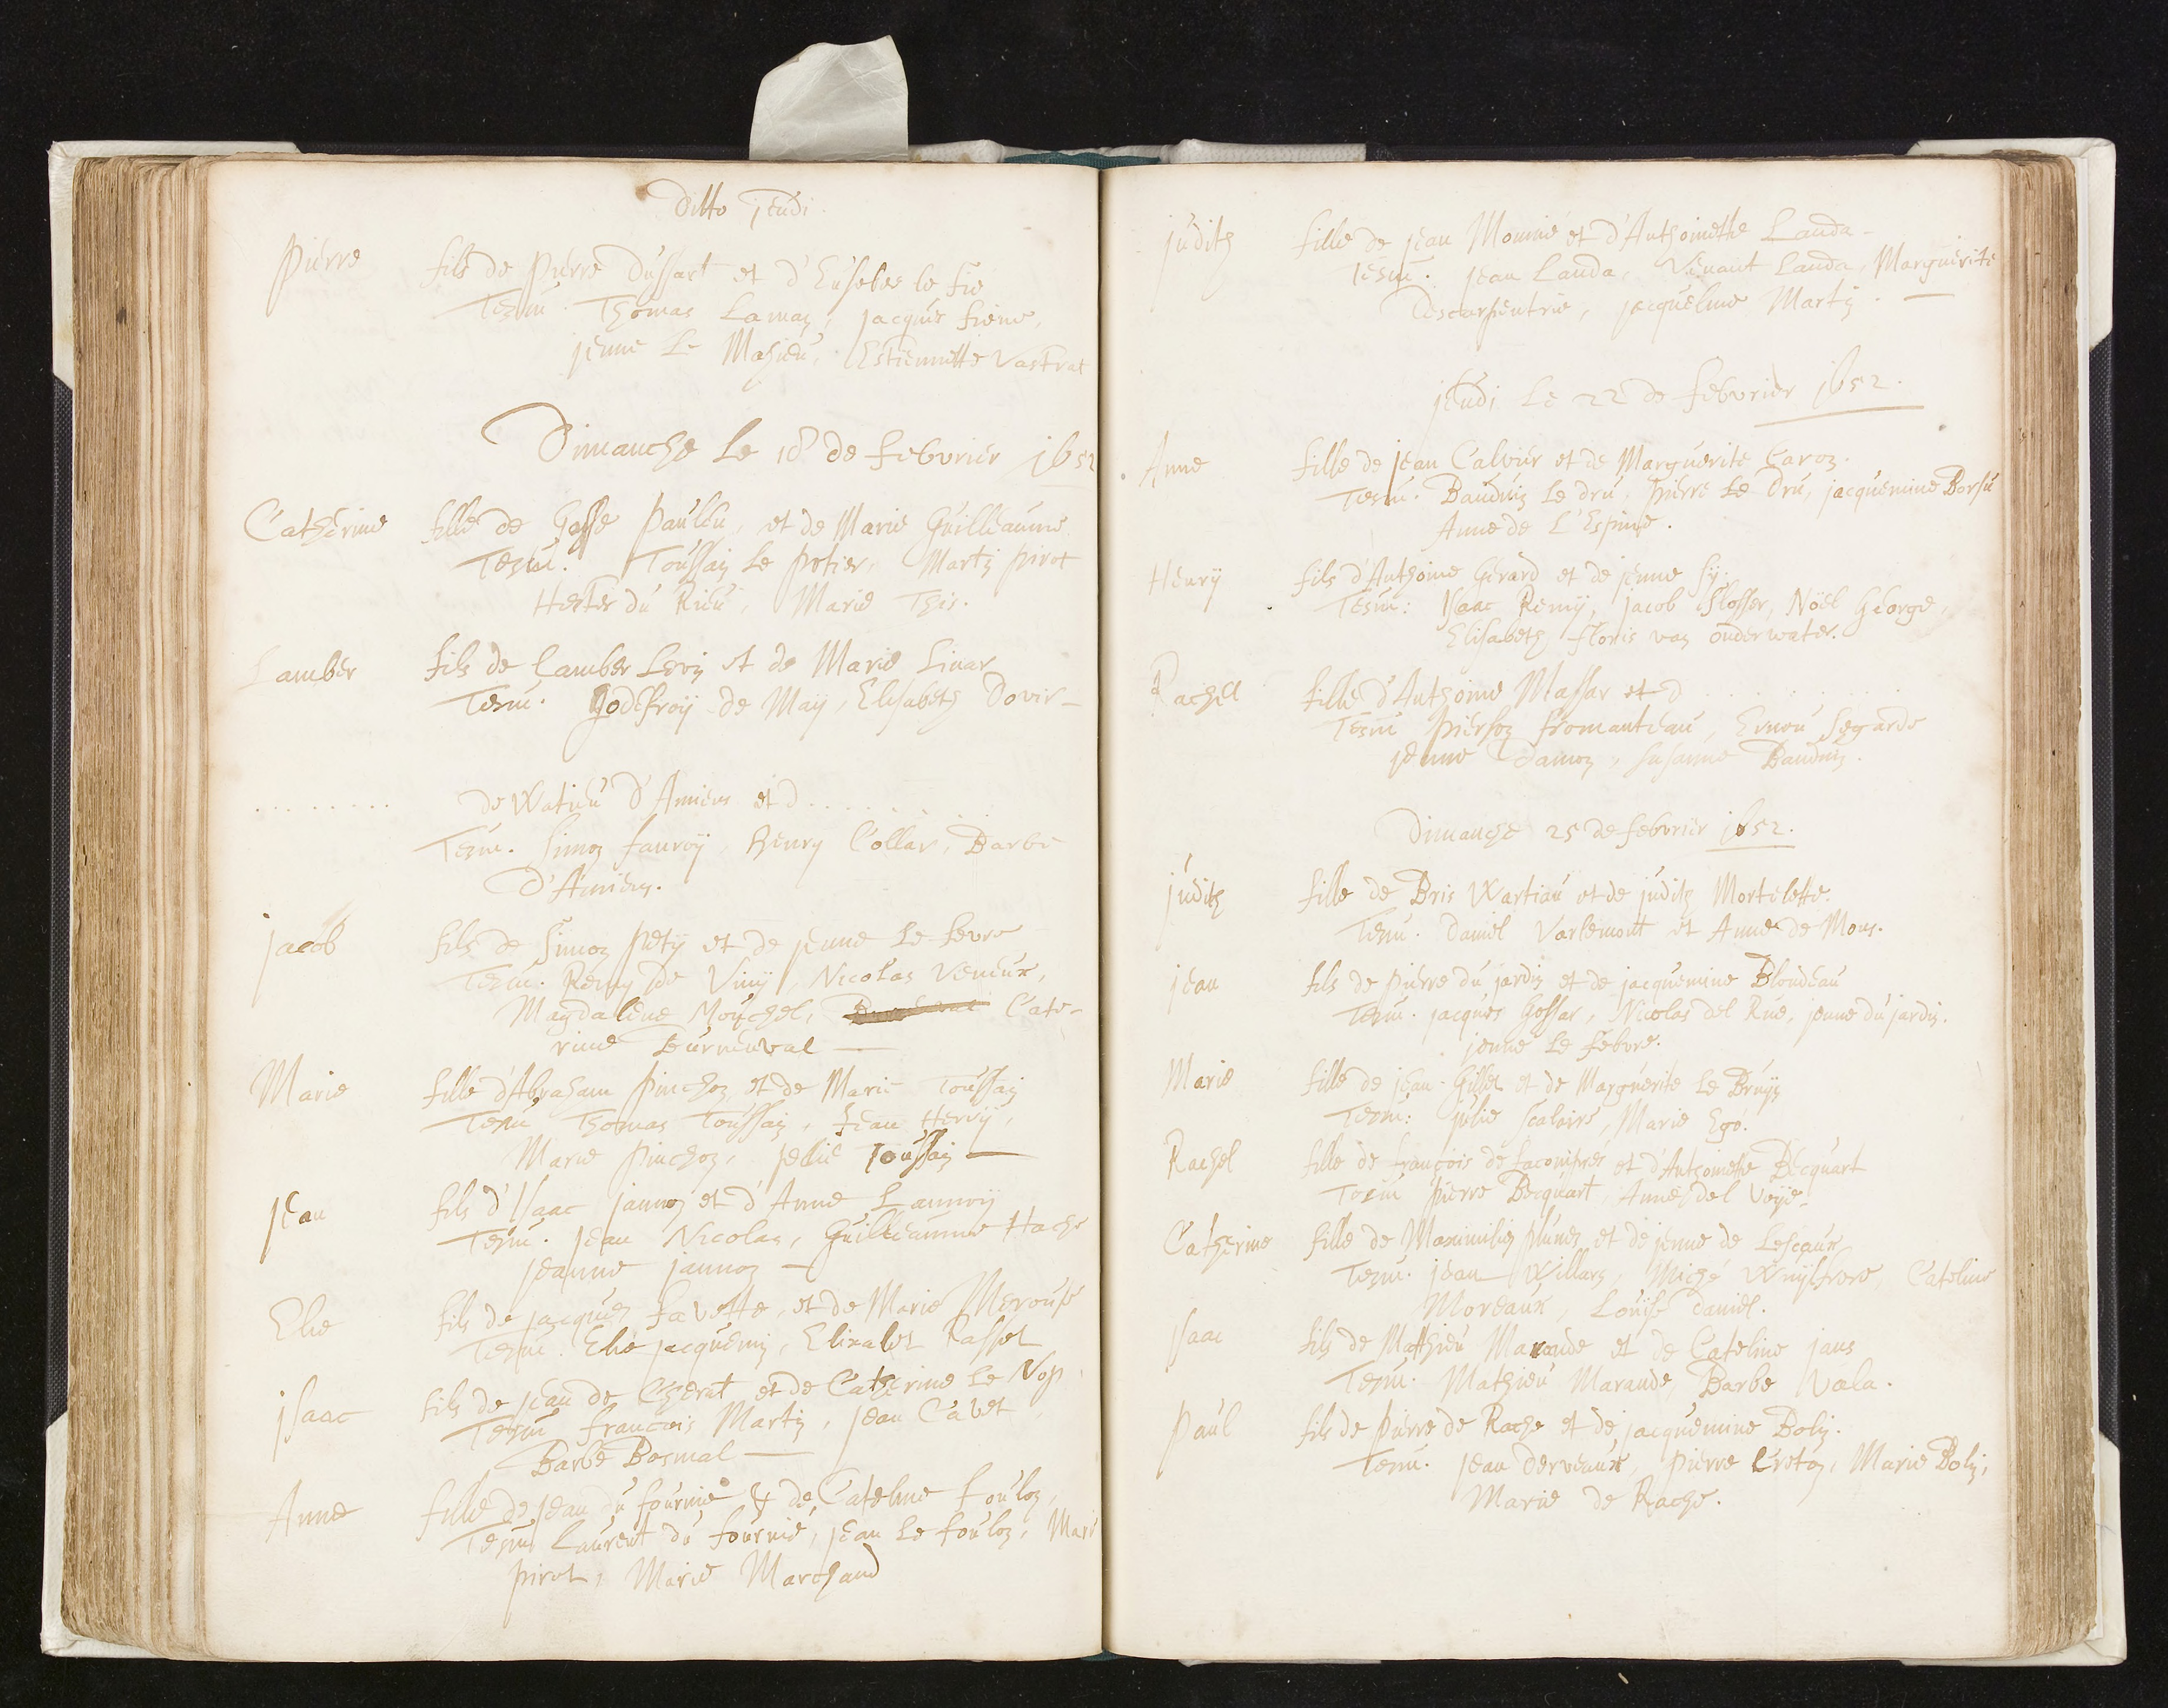 Ditto jeudi.
Pierre fils de Pierre Dussart et d'Eusebee le fie
Tesm. Thomas Laman, jacques fiene,
jenne le Mahieu, Estiennette Vastrat
Dimanche le 18 de febvrier 1652
Catherine fille de Gosse Paulle, et de Marie Guilleaume
Tesm. Toussain le Potier, Martin Pirot
Hester du Rieu, Marie This.
Lamber fils de Lamber Levin et de Marie Linar
Tesm. Godefroij de Maij, Elisabeth Dovir-
......... de Watieu d'Amiens et d......
Tesm. Simon fauroij, Henry Collar, Barbe
D'Amiens.
jacob fils de Simon Petij et de jenne le fevre
Tesm. Remy de Vinij, Nicolas Veneur,
Magdalene Mouchel, Cate-
rine Leurneuval —
Marie fille d'Abraham Pinchon et de Marie Toussain
Tesm Thomas Toussain, Jean Hervij,
Marie Pinchon, jelie Toussain —
jean fils d'Isaac jannon et d'Anne Lannoij
Tesm. jean Nicolas, Guilleaume Hache
jeanne jannon —
Elie fils de jacques favette, et de Marie Merouse
Tesm. Elie jacquemin, Elizabet Rasset
jsaac fils de jean de Cherat et de Catherine le Nop.
Tesm francois Martin, jean Cavet
Barbe Bosmal —
Anne fille de jean du fournie & de Cateline foulon,
Tesm Laurent du fournie, jean le foulon, Mari
pirot, Marie Marchand
judith fille de jean Mounie et d'Anthoinette Landa-
Tesm. jean Landa, Vinant Landa, Marguerite
Descarpentrie, jacqueline Martin. —
jeudi le 22 de febvrier 1652.
Anne fille de jean Calvier et de Marguerite Caron.
Tesm. Bauduin le dru, Pierre le Dru, jacquemine Borsu
Anne de L'Espine.
Henrij fils d'Anthoine Gerard et de jenne sij.
Tesm: Isaac Remij, jacob Slosser, Nöel George,
Elisabeth floris van onderwater.
Rachel fille d'Anthoine Massar et d.........
Tesm Pierson fromanteau, Ernou Segarde
jenne Damon, Susanne Bauduin.
Dimanche 25 de febvrier 1652.
judith fille de Bris Wartiau et de judith Mortelette.
Tesm. Daniel Varlemont et Anne de Mons.
jean fils de Pierre du jardin et de jacquemine Blondeau
Tesm. jacques Gossar, Nicolas del Rue, jenne du jardin.
jenne le febvre.
Marie fille de jean Gillet et de Marguerite le Bruijn
Tesm: julie Scalaire, Marie Ego.
Rachel fille de francois de facompres et d'Anthoinette Becquart
Tesm Pierre Becquart, Anne del Voije.
Catherine fille de Maximilien Plumez et de jenne de Lescaux
Tesm. jean Willars, Miché Cateline
Moreaux, Louijse Daniel.
jsaac fils de Matthieu Maraude et de Cateline jans
Tesm. Mathieu Maraude, Barbe Wala.
Paul fils de Pierre de Rache et de jacquemine Bolij.
Tesm. jean Derveaux, Pierre Creton, Marie Bolij,
Marie de Rache.